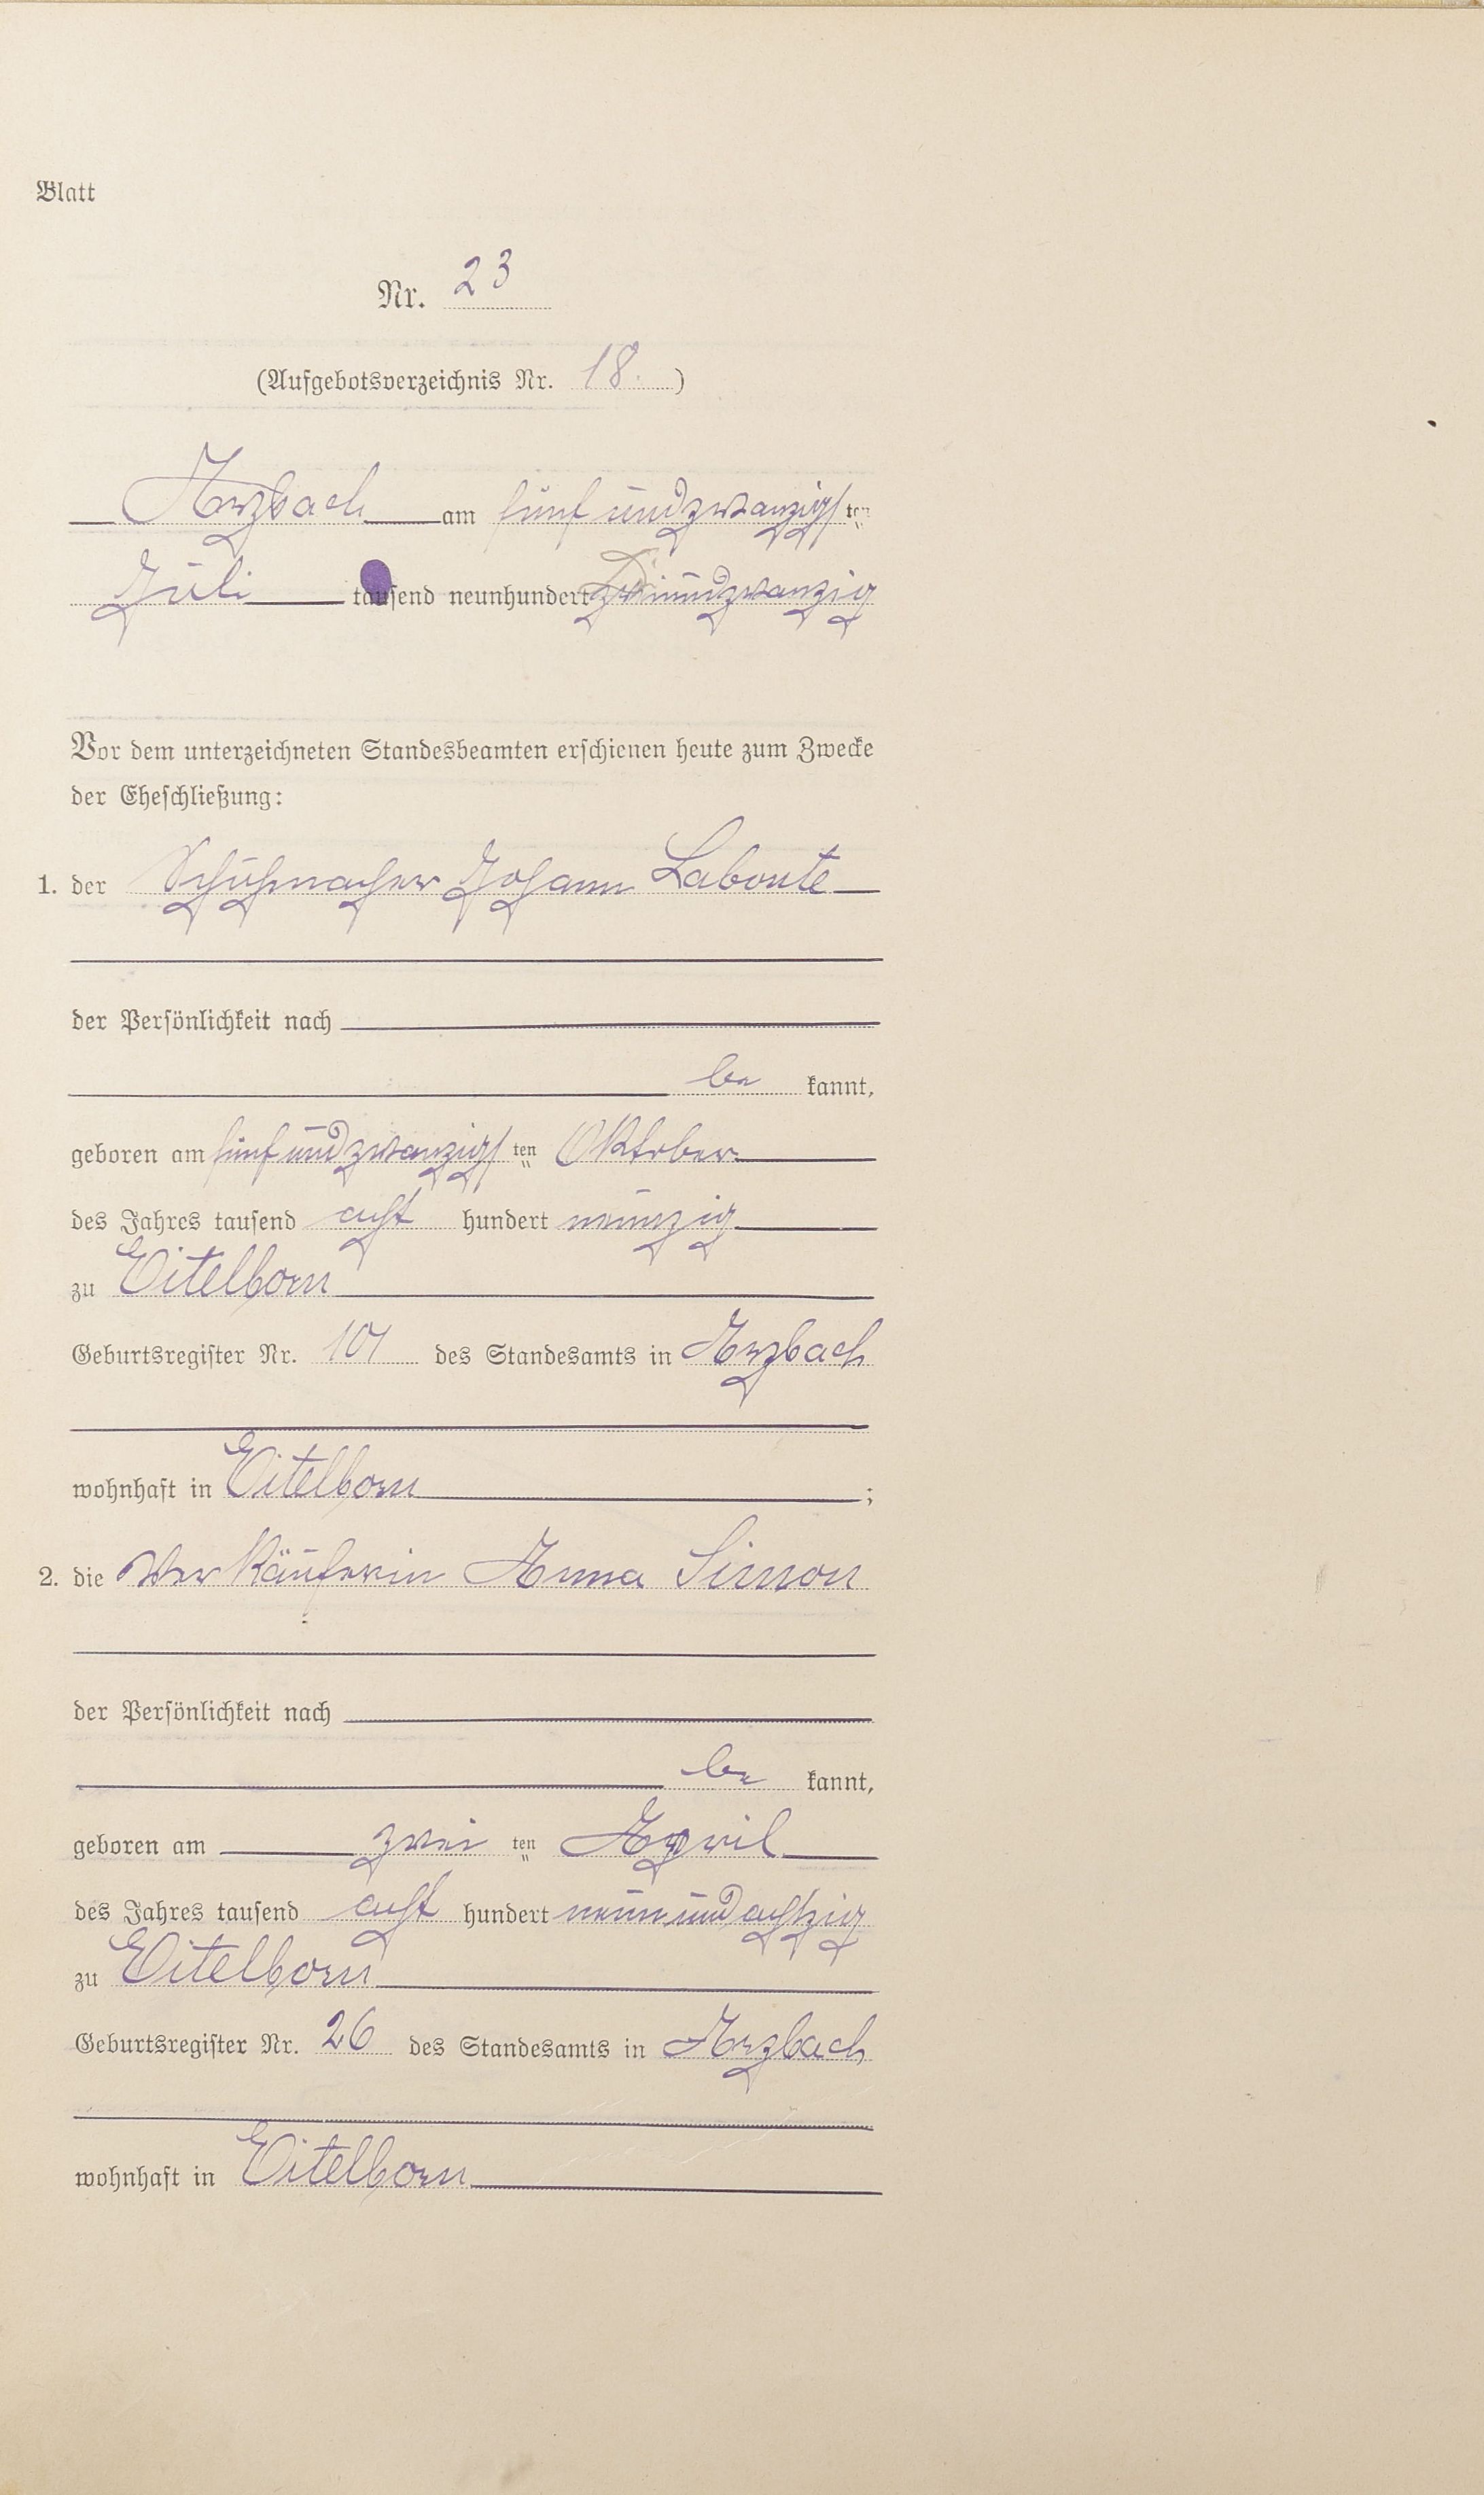 Blatt
Nr. 23
(Aufgebotsverzeichnis Nr. 18.)
Arzbach am fünfundzwanzigsten
Juli tausend neunhundert undzwanzig
Vor dem unterzeichneten Standesbeamten erschienen heute zum Zwecke
der Eheschließung:
1. der Schuhmacher Johann Labonte
der Persönlichkeit nach
be kannt,
geboren am fünfundzwanzigsten Oktober
des Jahres tausend acht hundert neunzig
zu Eitelborn
Geburtsregister Nr. des Standesamts in Arzbach
wohnhaft in Eitelborn ;
2. die Verkäuferin Anna Simon
der Persönlichkeit nach
be kannt,
geboren am zwei ten April
des Jahres tausend acht hundert neunundachtzig
zu Eitelborn
Geburtsregister Nr. 26 des Standesamts in Arzbach
wohnhaft in Eitelborn